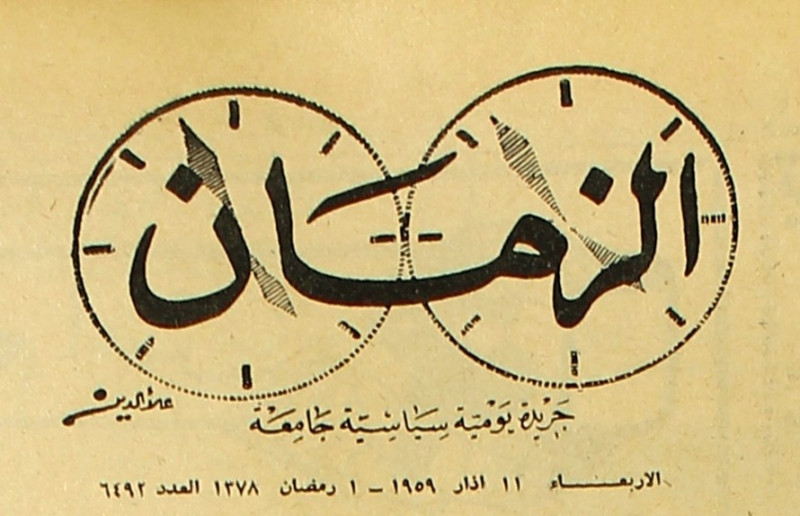 الزمان
جريدة يومية سياسية جامعة
علاء الدين
الاربعاء ١١ اذار ١٩٥٩ - ١ رمضان ١٣٧٨ العدد ٦٤٩٢